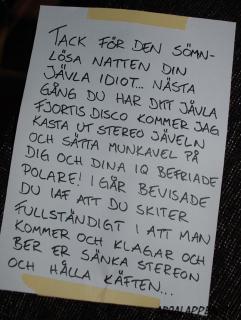 TACK FÖR DEN SÖMN-
LÖSA NATTEN DIN
JÄVLA IDIOT... NÄSTA
GÅNG DU HAR DITT JÄVLA
FJORTIS DISCO KOMMER JAG
KASTA UT STEREO JÄVELN
OCH SÄTTA MUNKAVEL PÅ
DIG OCH DINA IQ BEFRIADE
POLARE! IGÅR BEVISADE
DU IAF ATT DU SKITER
FULLSTÄNDIGT I ATT MAN
KOMMER OCH KLAGAR OCH
BER ER SÄNKA STEREON
OCH HÅLLA KÄFTEN...